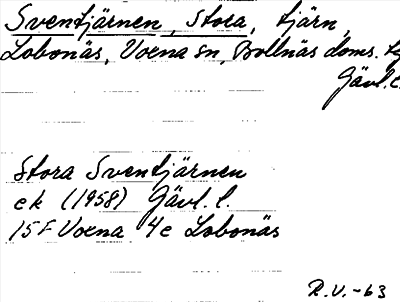 Sventjärnen, Stora, tjärn,
Lobonäs, Voxna sn, Bollnäs doms.
Gävl.l.
Stora Sventjärnen
ek (1958) Gävl. l.
15F Voxna 4e Lobonäs
R.V.-63